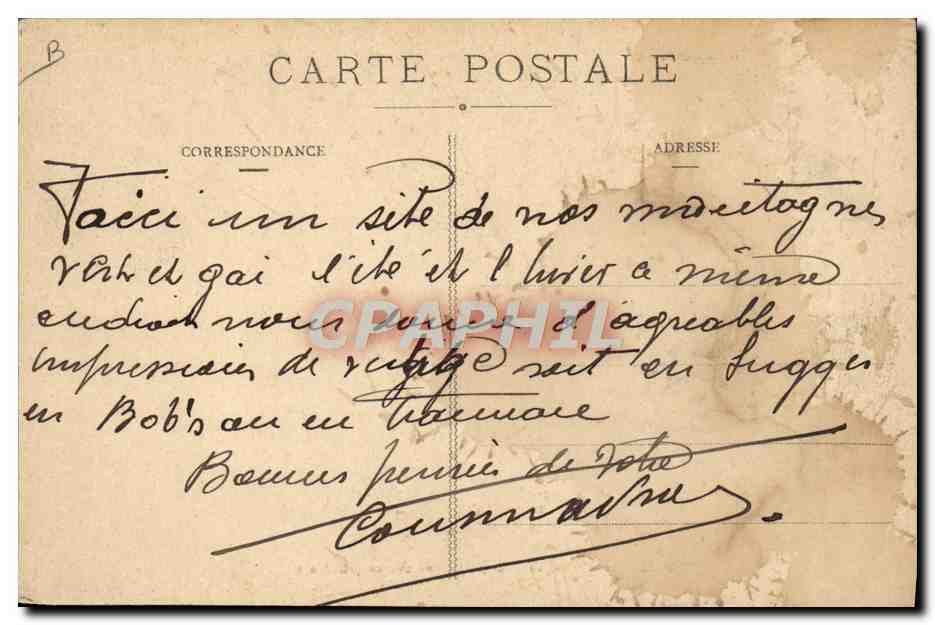 B
CARTE POSTALE
CORRESPONDANCE
ADRESSE
Voici un site de nos montagnes
vert et gai l'été et l'hiver ce même
endroit nous donne d'agréables
impressions de soit en luges
en Bob's ou en traineau
Bonnes pensées de votre
CPAPHIL